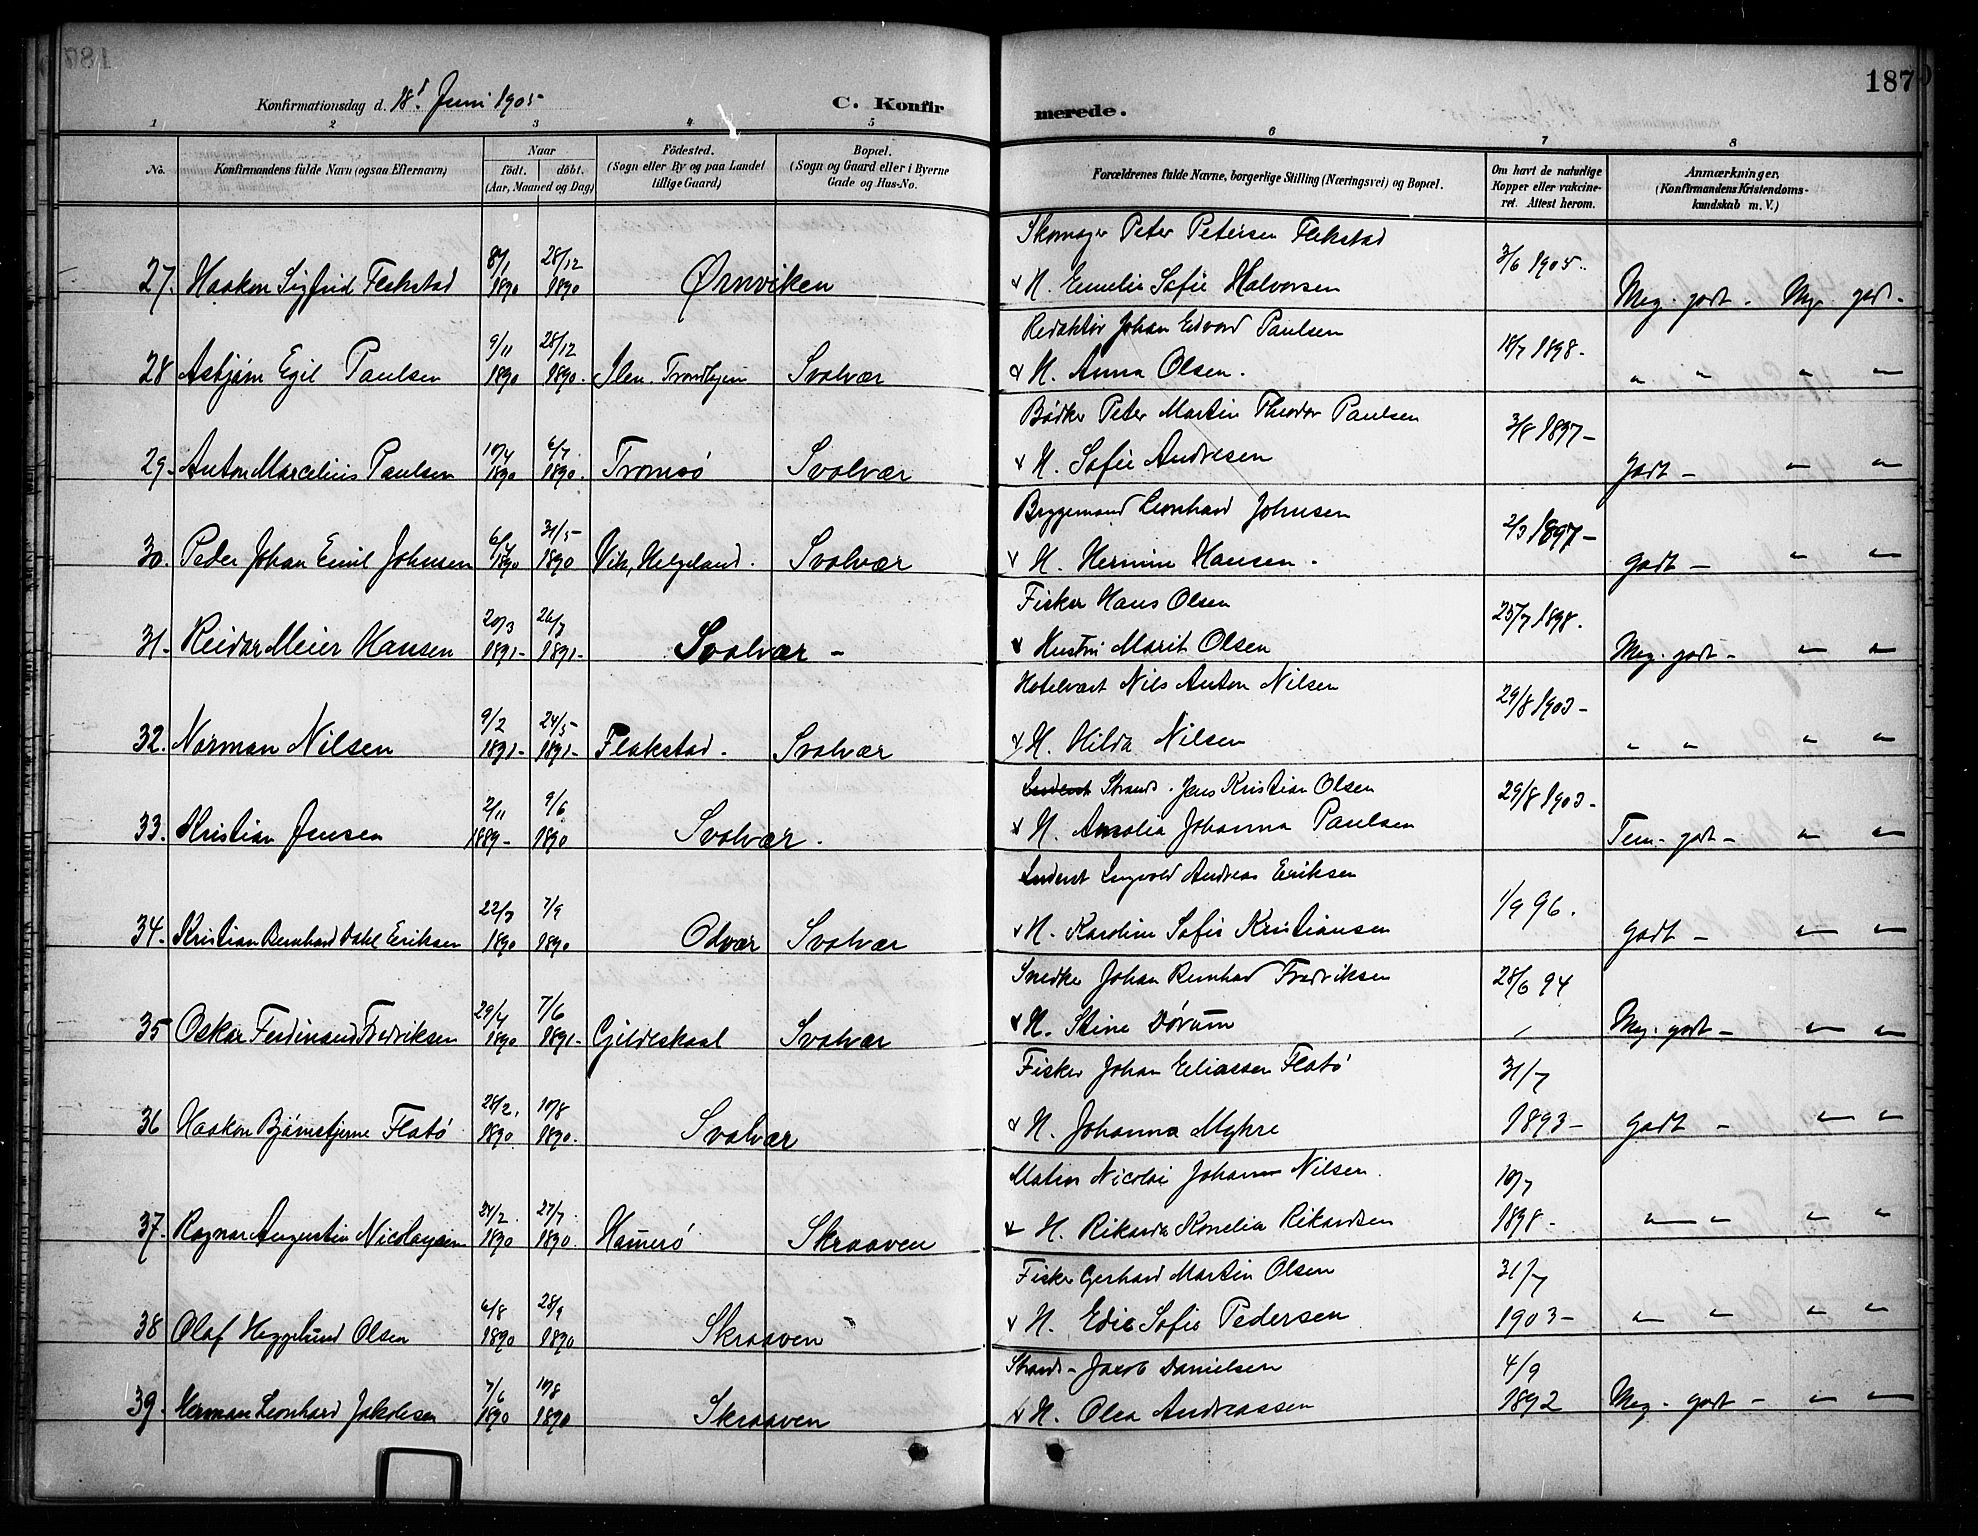 187
Konfirmationsdag d. 18d Juni 1905
C. Konfirmerede.
1 2 3 4 5 6 7 8
No.
Konfirmandens fulde Navn (ogsaa Efternavn)
Naar
födt. döbt.
(Aar, Maaned og Dag)
Födested.
(Sogn eller By og paa Landet
tillige Gaard)
Bopæl.
(Sogn og Gaard eller i Byerne
Gade og Hus-No.
Forældrenes fulde Navne, borgerlige Stilling (Næringsvei) og Bopæl.
Om havt de naturlige
Kopper eller vakcine-
ret. Attest herom.
Anmærkninger,
(Konfirmandens Kristendoms-
kundskab m. V.)
8/1 28/12 Skomager Peter Petersen Flekstad 3/6 1905.
27. Haakon Sigfrid Flekstad 1890 1890 Ørnviken & H. Emelie Sofie Halvorsen Meg. godt - Meg. godt.
9/11 28/12 Redaktör Johan Edvard Paulsen 18/7 1898.
28 Asbjørn Egil Paulsen 1890 1890. Ilen. Trondhjem Svolvær & H. Anna Olsen. " " " "
10/4 6/7 Bödker Peter Martin Theodor Paulsen 3/8 1897-
29. Anton Marcelius Paulsen 1890 1890. Tromsö Svolvær & H. Sofie Andresen Godt - " "
6/4 31/5 Bryggemand Leonhard Johnsen 2/3 1897-
30. Peder Johan Emil Johnsen 1890 1890 Vik, Helgeland. Svolvær & H. Hermine Hansen. godt - " "
20/3 26/7 Fisker Hans Olsen 25/7 1898.
31. Reidar Meier Hansen 1891- 1891- Svolvær - & Hustru Marit Olsen Meg. godt - " "
9/2 24/5 Hotelvært Nils Anton Nilsen 29/8 1903-
32. Norman Nilsen 1891- 1891- Flakstad. Svolvær & H. Hilda Nilsen " " " "
2/11 9/6 Strands. Jens Kristian Olsen 29/8 1903-
33. Kristian Jensen 1889- 1890 Svolvær. & H. Amalia Johanna Paulsen Tem. godt - " "
22/7 7/9 Inderst Ingvald Andreas Eriksen 1/9 96.
34. Kristian Bernhard Dahl Eriksen 1890 1890 Odvær Svolvær & H. Karoline Sofie Kristiansen Godt - " "
29/4 7/6 Snedker Johan Bernhard Fredriksen 28/6 94
35 Oskar Ferdinand Fredriksen 1890 1891- Gildeskaal Svolvær & H. Stine Dörum Meg. godt - " "
28/2. 10/8 Fisker Johan Eliassen Flatö 31/7
36 Haakon Bjørnstjerne Flatö 1890 1890. Svolvær & H. Johanna Myhre 1893- Godt - " "
24/2. 27/7 Matros Nicolai Johan Nilsen. 10/7
37. Ragnar Augustin Nicolaysen 1890 1890. Hamerö Skraaven & H. Rikarda Kornelia Rikardsen 1898- " " " "
6/8 28/9 Fisker Gerhard Martin Olsen 31/7
38 Olaf Hegglund Olsen 1890 1890 Skraaven & H. Edie Sofie Pedersen 1903- " " " "
7/6 10/8 Strands- Jacob Danielsen 4/9
39. Herman Leonhard Jakobsen 1890 1890 Skraaven & H. Olea Andreassen 1892 Meg. godt - " "